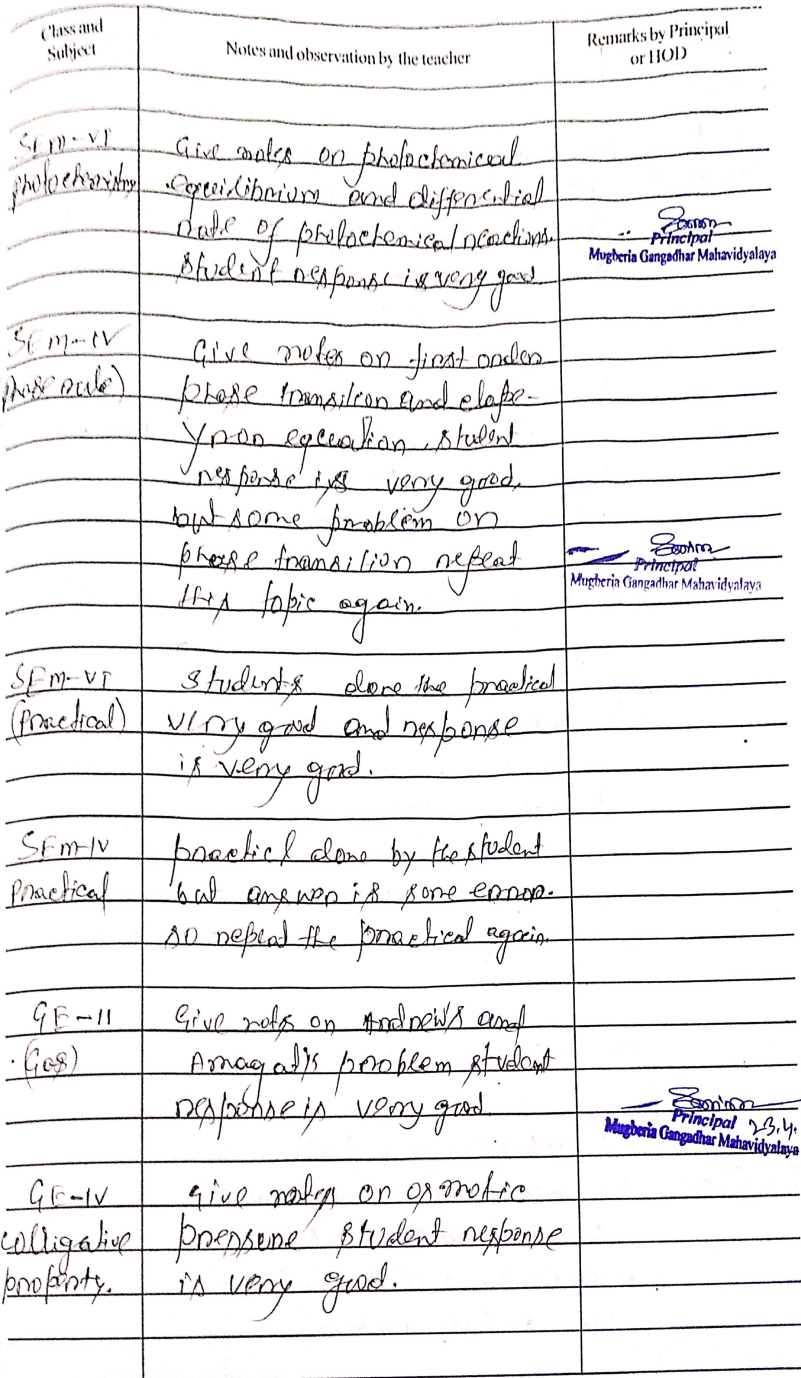 Class and Subject
Notes and observation by the teacher
Remarks by Principal or HOD
SEM-VI Give notes on photochemical
photochemistry equilibrium and differential
rate of photochemical reactions.
student response is very good
Principal
Mugberia Gangadhar Mahavidyalaya
SEM-IV Give notes on first order
phase rule) phase transition and
equation, student
response is very good,
but some problem on
phase transition repeat
this topic again.
Principal
Mugberia Gangadhar Mahavidyalaya
SEM-VI students done the practical
(Practical) very good and response
is very good.
SEM-IV practicl done by the student
Practical but answer is some error.
so repeat the practical again.
GE-II Give notes on Andrew's and
(Gas) Amagat's problem student
response is very good
Principal 23.4.
Mugberia Gangadhar Mahavidyalaya
GE-IV Give notes on osmotic
colligative pressure student response
property. is very good.